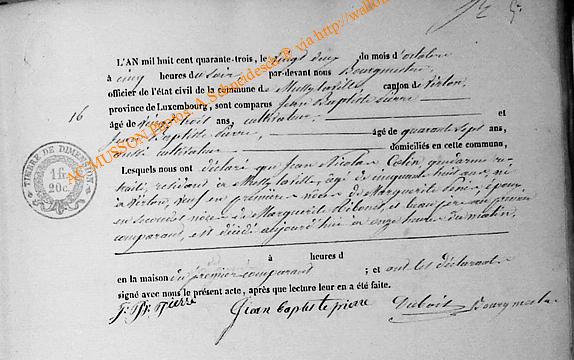 L'AN mil huit cent quarante-trois, le vingt deux du mois d'octobre
à cinq heures du soir par-devant nous Bourgmestre,
officier de l'état civil de la commune de Mussy-laville, canton de Virton,
16
province de Luxembourg, sont comparus Jean Baptiste Pierre
âgé de vingt trois ans, cultivateur, et
Jean Baptiste Pierre, âgé de quarante sept ans,
aussi cultivateur domiciliés en cette commune,
Lesquels nous ont déclaré que Jean Nicolas Colin, gendarme re-
traité, résidant à Mussy laville, âgé de cinquante huit ans, né
à Virton, veuf en premières noces de Marguerite époux
en secondes noces de Marguerite et beau père au premier
comparant, est décédé aujourd'hui à onze heures du matin,
à heures d
en la maison du premier comparant ; et ont les déclarants
signé avec nous le présent acte, après que lecture leur en a été faite.
J. Bt. Pierre Jean baptiste pierre Dubois Bourgmestre
TIMBRE DE DIMENSION
1 fr
20 c.
AC MUSSON Photos A. Schneidesch © via http://wallo